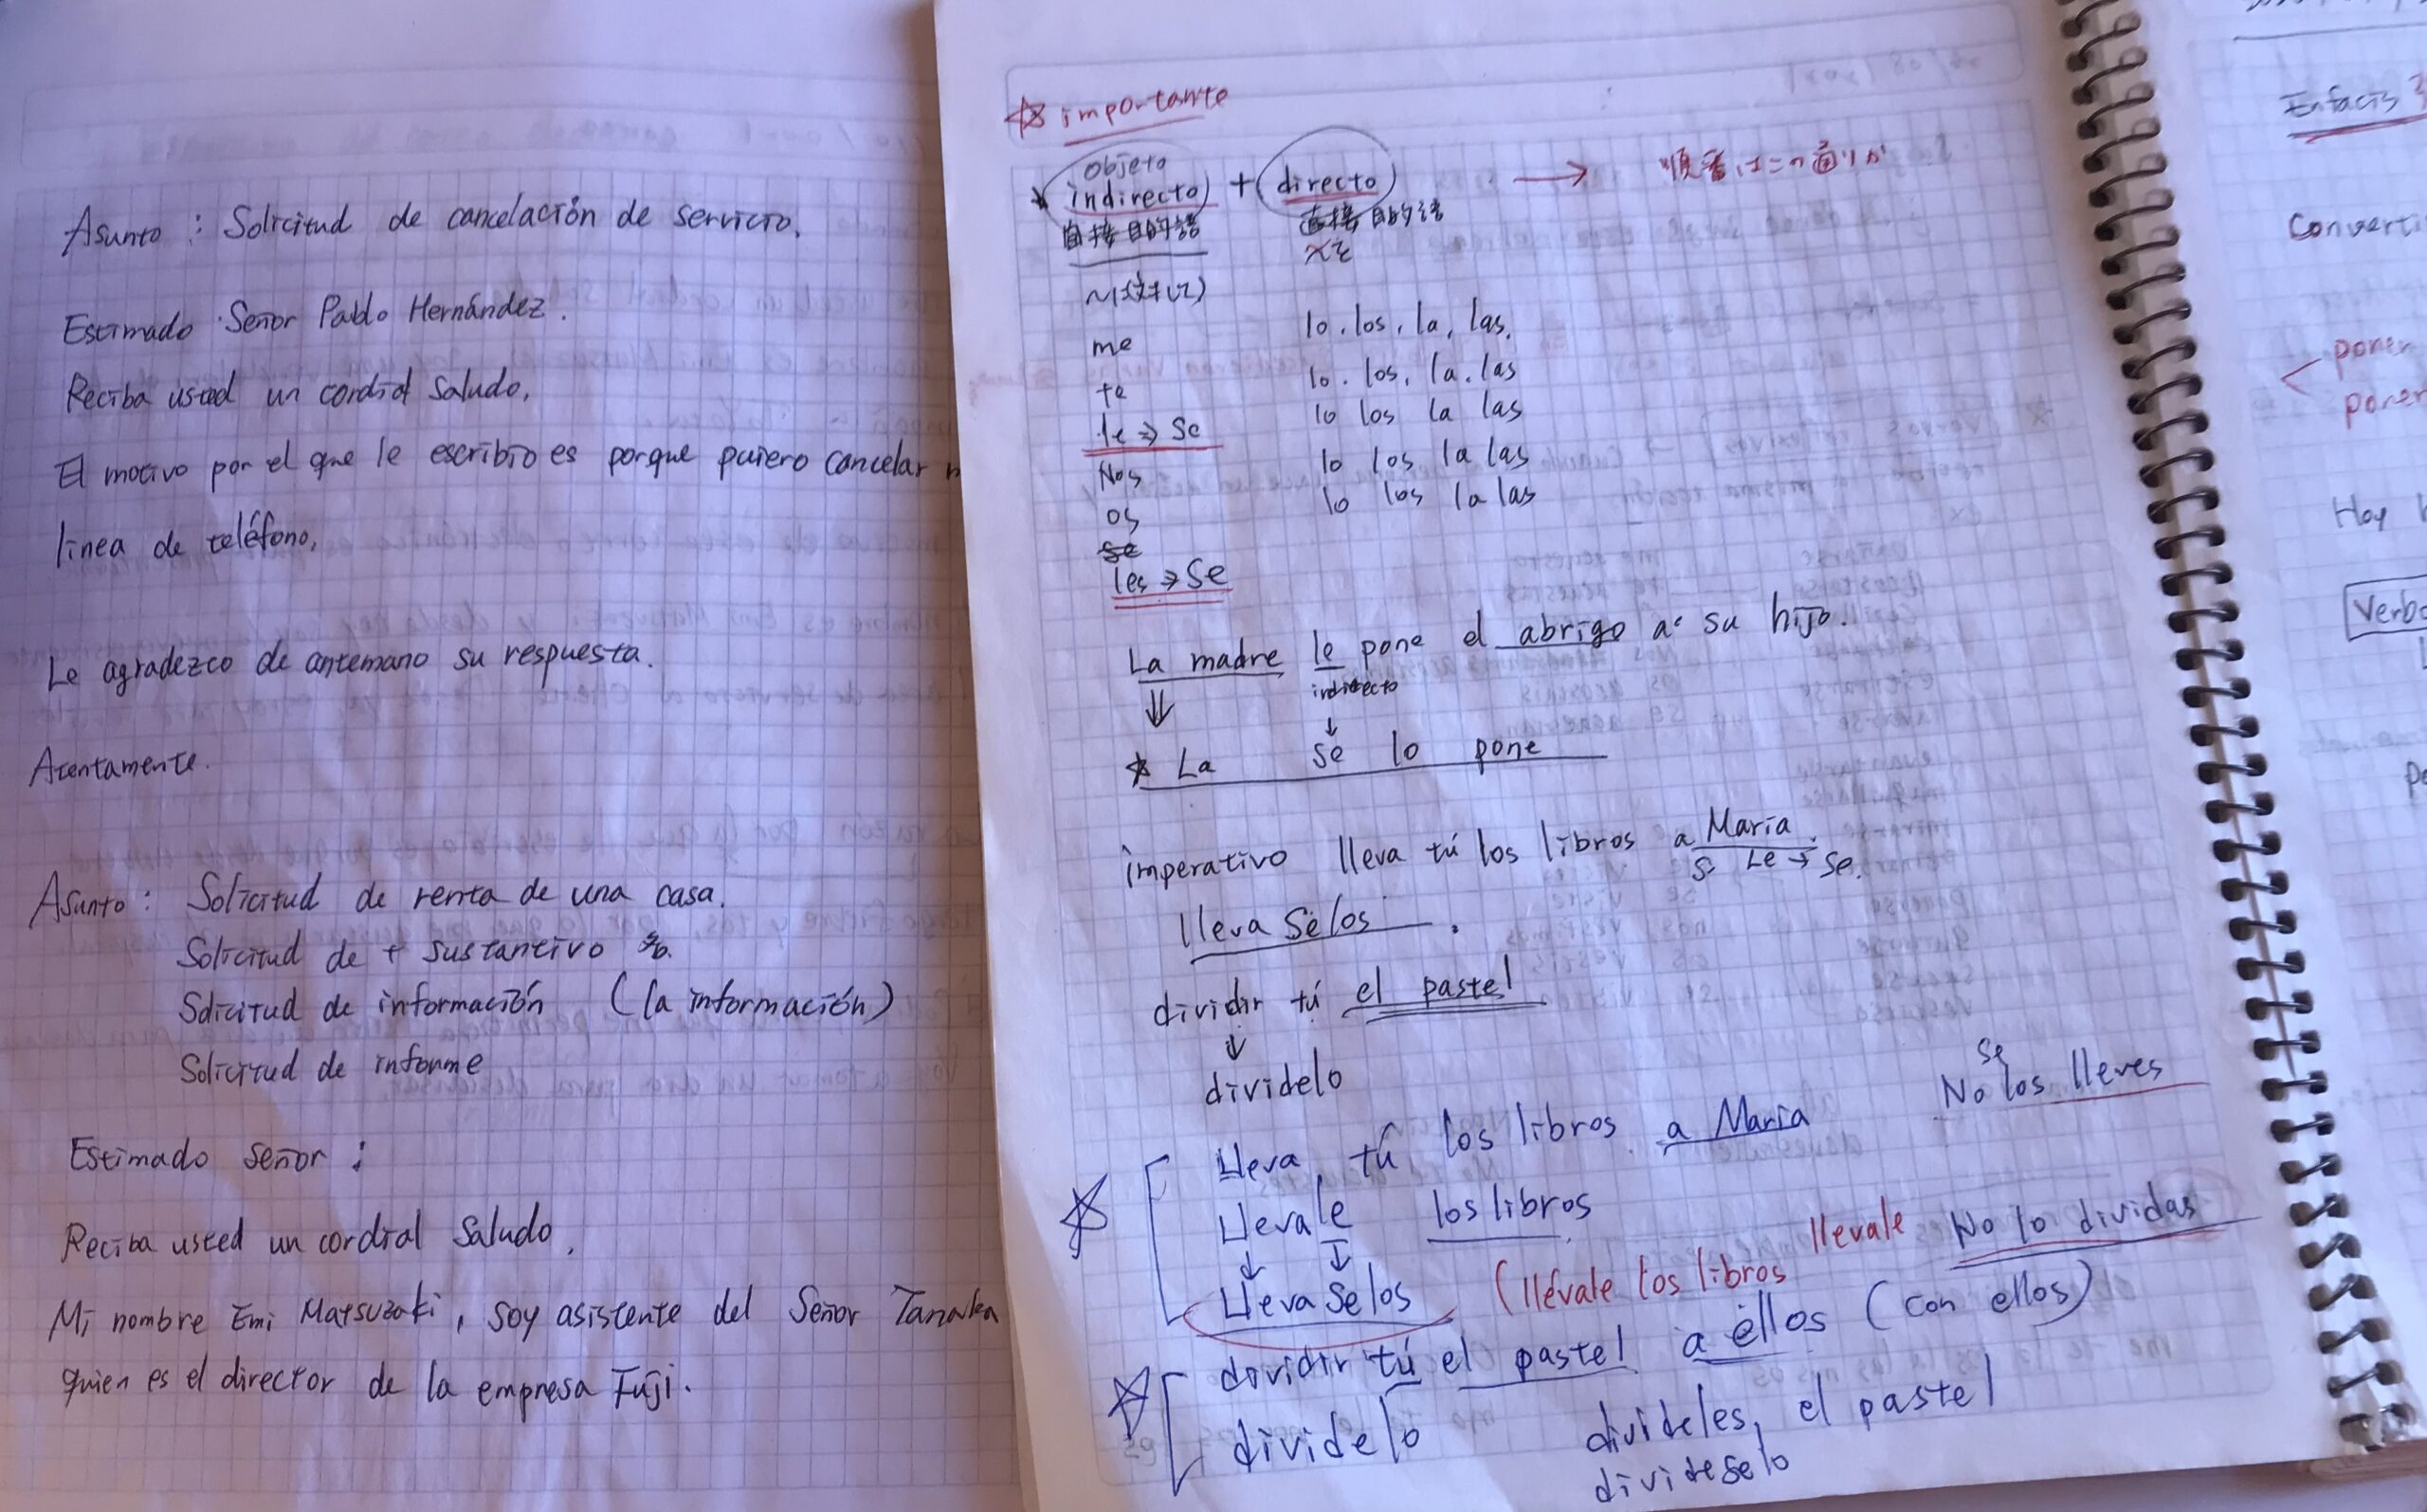 Asunto : Solicitud de cancelación de servicio.
Estimado Señor Pablo Hernández.
Reciba usted un cordial Saludo.
El motivo por el que le escribio es porque quiero cancelar
línea de teléfono.
Le agradezco de antemano su respuesta.
Atentamente.
Asunto : Solicitud de renta de una casa.
Solicitud de + sustantivo
Solicitud de información (la información)
Solicitud de informe
Estimado señor :
Reciba usted un cordial Saludo.
Mi nombre Emi Matsuzaki, soy asistente del Señor Tanaka
quien es el director de la empresa Fuji.
☆ importante
objeto
indirecto + directo →
目的語 直接目的語
~に対して
me lo. los, la, las.
te lo. los, la. las
le ⇒ Se lo los la las
Nos lo los la las
os lo los la las
se
les ⇒ Se
La madre le pone el abrigo a su hijo.
indirecto
☆ La se lo pone
imperativo lleva tú los libros a María.
Le → Se.
lleva Selos.
dividir tú el pastel
dividelo
Se
No los lleves
Lleva tú los libros a María
Llevale los libros
llevale
No lo dividas
Lleva Se los (llévale los libros
dividir tú el pastel a ellos (con ellos)
dividelo divideles, el pastel
divideselo
Enfacis
Converti
poner
poner
Hoy
Verbo